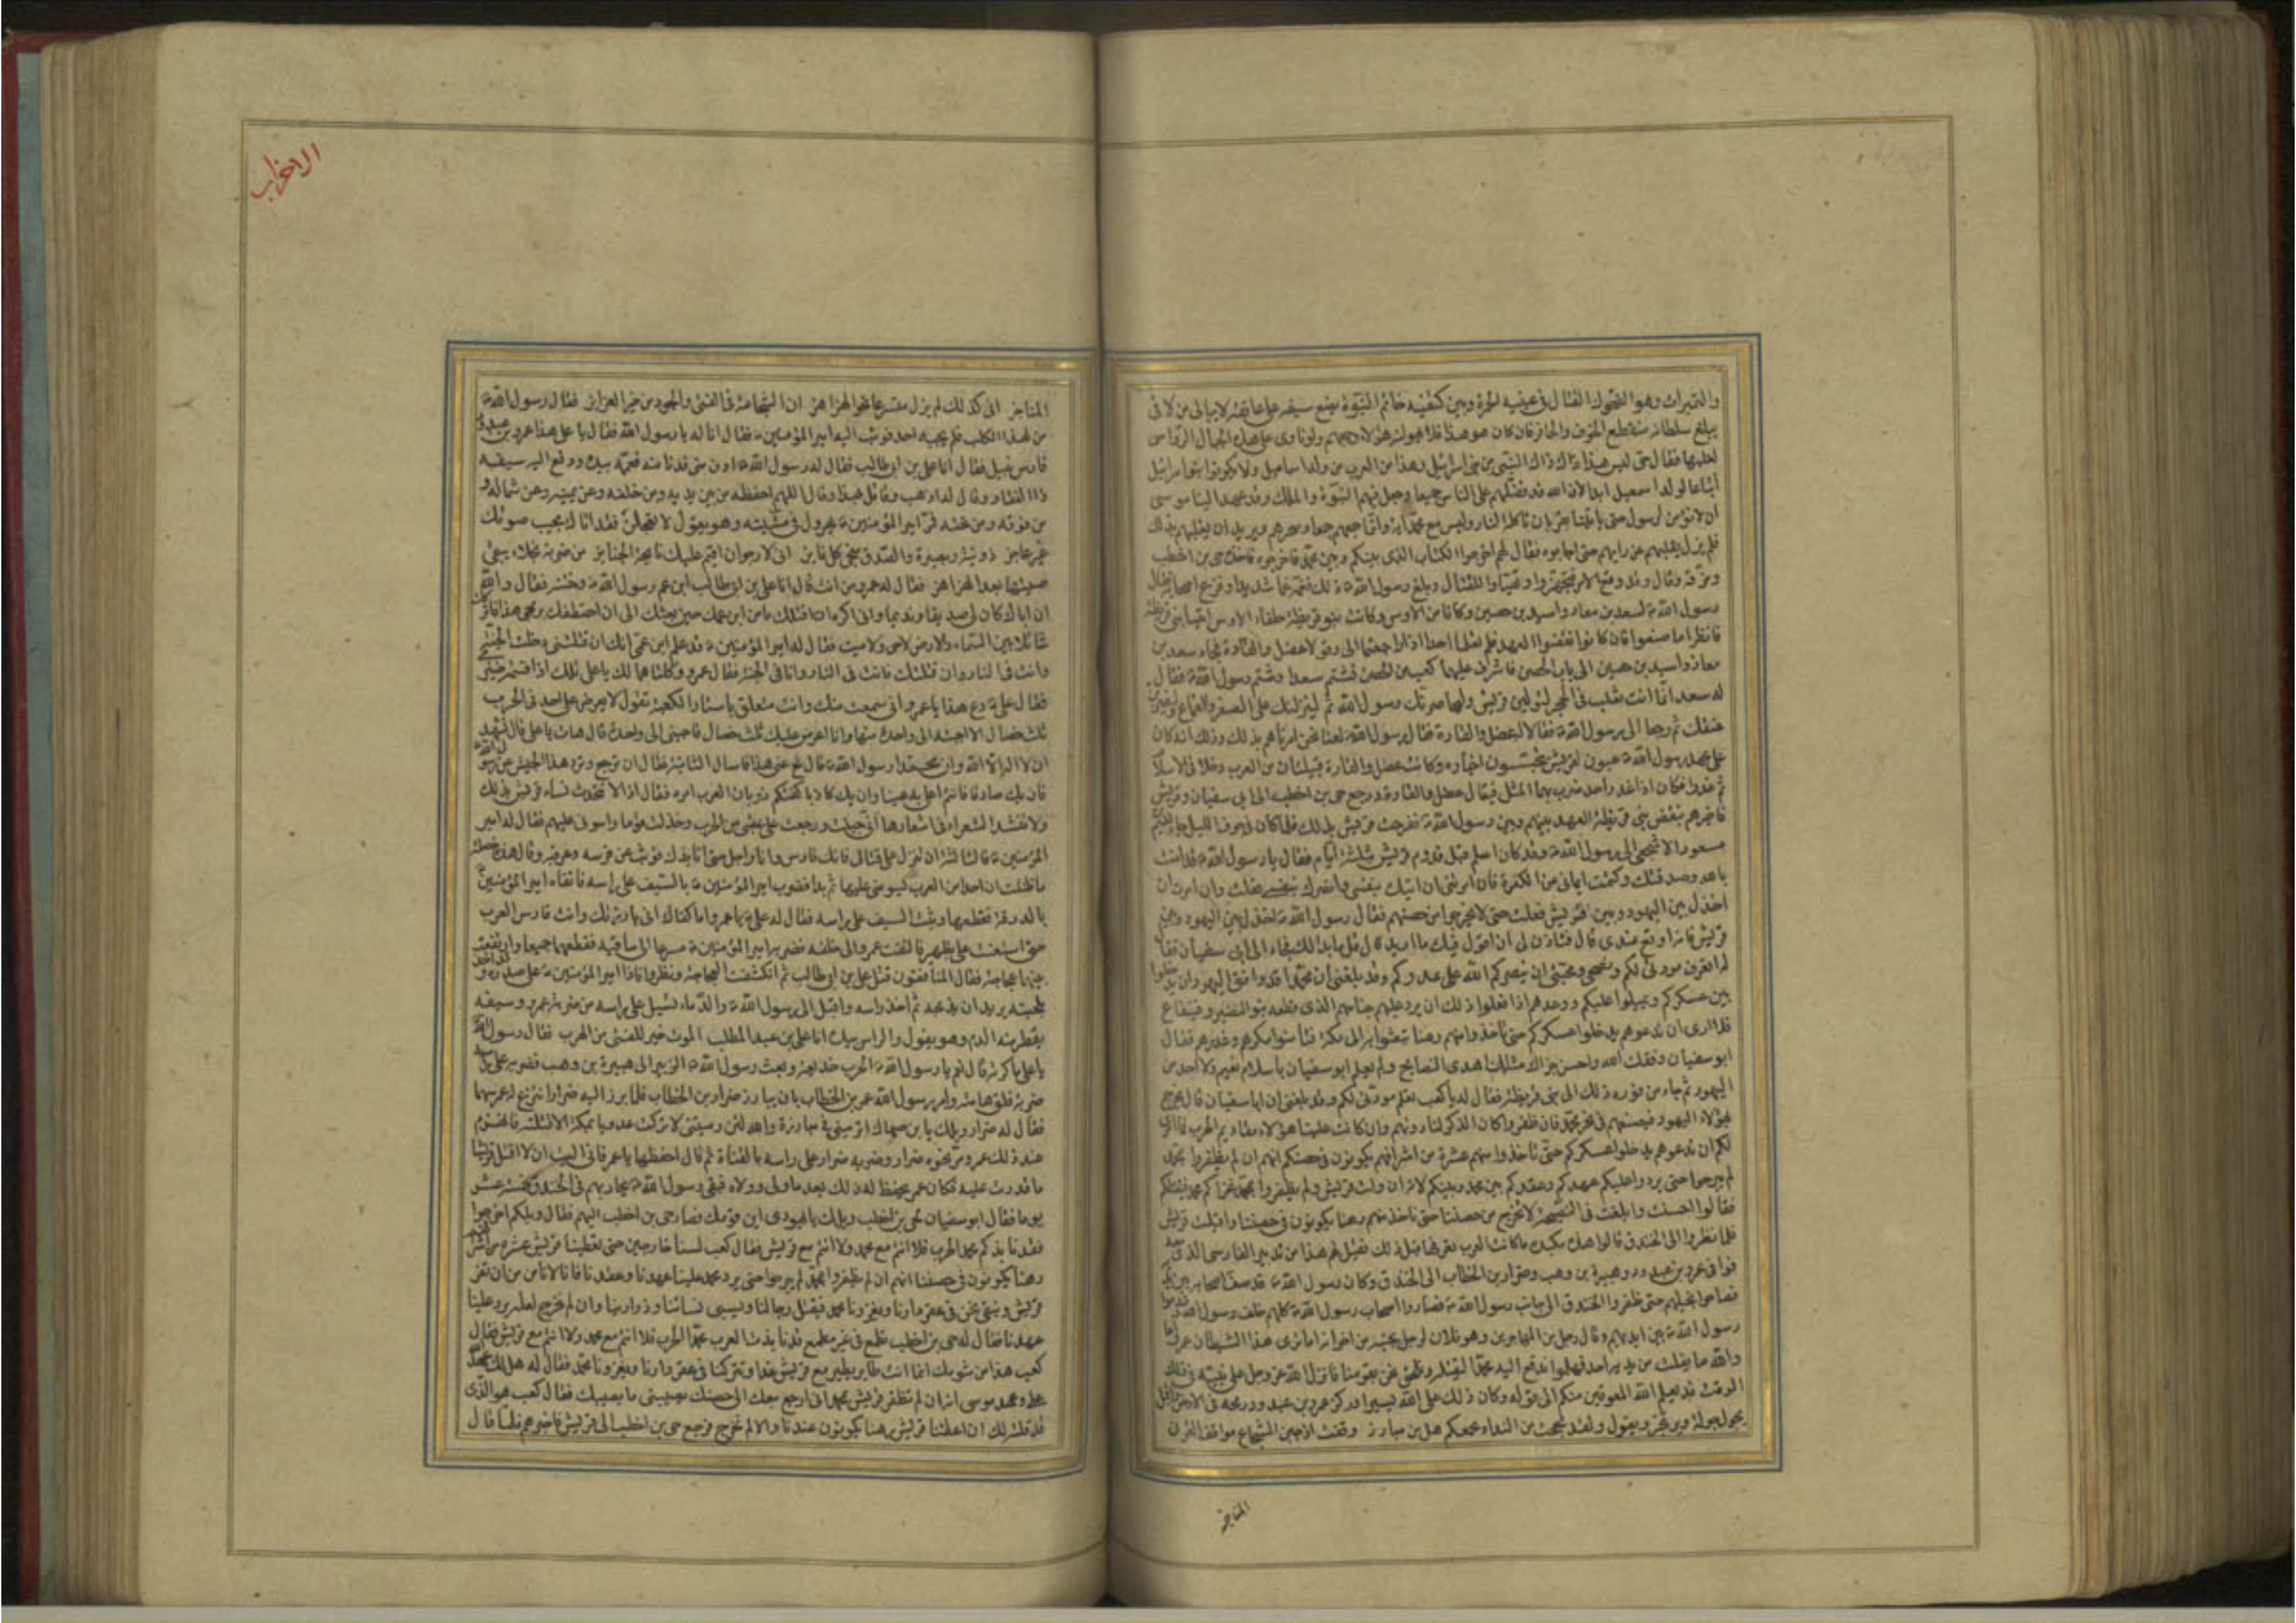 والتميرات وهو الضحوك القتال في عينيه الحمرة وبين كتفيه خاتم النبوة يضع سيفه على عاتقه لا يبالي من لاقى
يبلغ سلطانه منقطع الخف والحافر فان كان هو هذا فلا يهولنه هؤلاء وجمعهم ولو ناوى على هذه الجبال الرواسي
لغلبها فقال حيي ليس هذا ذاك ذاك النبي من بني اسرائيل وهذا من العرب من ولد اسمعيل ولا يكونوا بنو اسرائيل
اتباعا لولد اسمعيل ابدا لان الله قد فضلهم على الناس جميعا وجعل فيهم النبوة والملك وقد عهد الينا موسى
ان لا نؤمن لرسول حتى ياتينا بقربان تاكله النار وليس مع محمد آية وانما جمعهم جمعا وسحرهم ويريد ان يغلبهم بذلك
فلم يزل يقلبهم عن رايهم حتى اجابوه فقال لهم اخرجوا الكتاب الذي بينكم وبين محمد فاخرجوه فاخذه حيي بن اخطب
ومزقه وقال قد وقع الامر فتجهزوا وتهيأوا للقتال وبلغ رسول الله ص ذلك فغمه غما شديدا وفزع اصحابه فقال
رسول الله ص لسعد بن معاذ واسيد بن حصين وكانا من الاوس وكانت بنو قريظة حلفاء الاوس ائتيا بني قريظة
فانظرا ما صنعوا فان كانوا نقضوا العهد فلا تعلما احدا اذا رجعتما الي وقولا عضل والقارة فجاء سعد بن
معاذ واسيد بن حصين الى باب الحصن فاشرف عليهما كعب من الحصن فشتم سعدا وشتم رسول الله ص فقال
له سعد انما انت ثعلب في جحر لتولين قريش وليحاصرنك رسول الله ثم لينزلنك على الصغر والقماع وليضربن
عنقك ثم رجعا الى رسول الله ص فقالا له عضل والقارة فقال رسول الله ص لعنا نحن امرناهم بذلك وذلك انه كان
على عهد رسول الله ص عيون لقريش يتجسسون اخباره وكانت عضل والقارة قبيلتان من العرب دخلا في الاسلام
ثم غدرا فكان اذا غدر احد ضرب بهما المثل فيقال عضل والقارة ورجع حيي بن اخطب الى ابي سفيان وقريش
فاخبرهم بنقض بني قريظة العهد بينهم وبين رسول الله ص ففرحت قريش بذلك فلما كان في جوف الليل جاء نعيم بن
مسعود الاشجعي الى رسول الله ص وقد كان اسلم قبل قدوم قريش بثلثة ايام فقال يا رسول الله ص قد آمنت
بالله وصدقتك وكتمت ايماني عن الكفرة فان امرتني ان آتيك بنفسي وانصرك بنفسي فعلت وان امرت ان
اخذل بين اليهود وبين قريش فعلت حتى لا يخرجوا من حصنهم فقال رسول الله ص اخذل بين اليهود وبين
قريش فانه اوقع عندي قال فتاذن لي ان اقول فيك ما اريد قال قل ما بدا لك فجاء الى ابي سفيان فقال
له تعرف مودتي لكم ونصحي ومحبتي ان ينصركم الله على عدوكم وقد بلغني ان محمدا قد وافق اليهود ان يدخلوا
بين عسكركم ويميلوا عليكم ووعدهم اذا فعلوا ذلك ان يرد عليهم جناحهم الذي قطعه بنو النضير وقينقاع
فلا ارى ان تدعوهم يدخلوا عسكركم حتى تاخذوا منهم رهنا تبعثوا به الى مكة فتأمنوا مكرهم وغدرهم فقال
ابو سفيان وفقك الله واحسن جزاك مثلك اهدى النصايح ولم يعلم ابو سفيان باسلام نعيم ولا احد من
اليهود ثم جاء من فوره ذلك الى بني قريظة فقال له يا كعب تعلم مودتي لكم وقد بلغني ان ابا سفيان قال نخرج
هؤلاء اليهود فنضعهم في نحر محمد فان ظفروا كان الذكر لنا دونهم وان كانت علينا هؤلاء مقاديم الحرب فما ارى
لكم ان تدعوهم يدخلوا عسكركم حتى تاخذوا منهم عشرة من اشرافهم يكونون في حصنكم انهم ان لم يظفروا بمحمد
لم يبرحوا حتى يردوا عليكم عهدكم وعقدكم بين محمد وبينكم لانه ان ولت قريش ولم يظفروا بمحمد غزاكم محمد فيقتلكم
فقالوا احسنت وابلغت في النصيحة لا نخرج من حصننا حتى ناخذ منهم رهنا يكونون في حصننا واقبلت قريش
فلما نظروا الى الخندق قالوا هذه مكيدة ما كانت العرب تعرفها قبل ذلك فقيل لهم هذا من تدبير الفارسي الذي معه
فوافى عمرو بن عبد ود وهبيرة بن وهب وضرار بن الخطاب الى الخندق وكان رسول الله ص قد صف اصحابه بين يديه
فصاحوا بخيلهم حتى طفروا الخندق الى جانب رسول الله ص فصاروا اصحاب رسول الله ص كلهم خلف رسول الله ص وقدموا
رسول الله ص بين ايديهم وقال رجل من المهاجرين وهو فلان لرجل بجنبه من اخوانه اما ترى هذا الشيطان عمرو اما
والله ما يفلت من يديه احد فهلموا ندفع اليه محمدا ليقتله ونلحق نحن بقومنا فانزل الله عز وجل على نبيه في ذلك
الوقت قد يعلم الله المعوقين منكم الى قوله وكان ذلك على الله يسيرا وركز عمرو بن عبد ود رمحه في الارض واقبل
يجول جولة ويرتجز ويقول ولقد بححت من النداء بجمعكم هل من مبارز ووقفت اذ جبن الشجاع مواقف القرن
المناجز
الاحزاب
المناجز اني كذلك لم ازل متسرعا نحو الهزاهز ان الشجاعة في الفتى والجود من خير الغرايز فقال رسول الله ص
من لهذا الكلب فلم يجبه احد فوثب اليه امير المؤمنين ع فقال انا له يا رسول الله فقال يا علي هذا عمرو بن عبد ود
فارس يليل فقال انا علي بن ابي طالب فقال له رسول الله ص ادن مني فدنا منه فعممه بيده ودفع اليه سيفه
ذا الفقار وقال له اذهب وقاتل بهذا وقال اللهم احفظه من بين يديه ومن خلفه وعن يمينه وعن شماله و
من فوقه ومن تحته فمر امير المؤمنين ع يهرول في مشيته وهو يقول لا تعجلن فقد اتاك مجيب صوتك
غير عاجز ذو نية وبصيرة والصدق منجي كل فايز اني لارجو ان اقيم عليك نايحة الجنايز من ضربة نجلاء يبقى
صيتها بعد الهزاهز فقال له عمرو من انت قال انا علي بن ابي طالب ابن عم رسول الله ص وختنه فقال والله
ان اباك كان لي صديقا ونديما واني اكره ان اقتلك ما امن ابن عمك حين بعثك الي ان اختطفك برمحي هذا فاتركك
شائلا بين السماء والارض لا حي ولا ميت فقال له امير المؤمنين ع قد علم ابن عمي انك ان قتلتني دخلت الجنة
وانت في النار وان قتلتك فانت في النار وانا في الجنة فقال عمرو وكلتاهما لك يا علي تلك اذا قسمة ضيزى
فقال علي ع دع هذا يا عمرو اني سمعت منك وانت متعلق باستار الكعبة تقول لا يعرض علي احد في الحرب
ثلث خصال الا اجبته الى واحدة منها وانا اعرض عليك ثلث خصال فاجبني الى واحدة قال هات يا علي قال تشهد
ان لا اله الا الله وان محمدا رسول الله ص قال نح عني هذا فاسال الثانية فقال ان ترجع وترد هذا الجيش عن رسول الله ص
فان يك صادقا فانتم اعلى به عينا وان يك كاذبا كفتكم ذوبان العرب امره فقال اذا لا تتحدث نساء قريش بذلك
ولا تنشد الشعراء في اشعارها اني جبنت ورجعت على عقبي من الحرب وخذلت قوما راسوني عليهم فقال له امير
المؤمنين ع فالثالثة ان تنزل الي قتالي فانك فارس وانا راجل حتى انابذك فوثب عن فرسه وعرقبه وقال هذه خصلة
ما ظننت ان احدا من العرب يسومني عليها ثم بدا فضرب امير المؤمنين ع بالسيف على راسه فاتقاه امير المؤمنين ع
بالدرقة فقطعها وثبت السيف على راسه فقال له علي ع يا عمرو اما كفاك اني بارزتك وانت فارس العرب
حتى استعنت علي بظهير فالتفت عمرو الى خلفه فضربه امير المؤمنين ع مسرعا الى ساقيه فقطعهما جميعا وارتفعت
بينهما عجاجة فقال المنافقون قتل علي بن ابي طالب ثم انكشفت العجاجة ونظروا فاذا امير المؤمنين ع على صدره قد اخذ
بلحيته يريد ان يذبحه ثم اخذ راسه واقبل الى رسول الله ص والدماء تسيل على راسه من ضربة عمرو وسيفه
يقطر منه الدم وهو يقول والراس بيده انا علي بن عبد المطلب الموت خير للفتى من الهرب فقال رسول الله ص
يا علي ماكرته قال نعم يا رسول الله ص الحرب خديعة وبعث رسول الله ص الزبير الى هبيرة بن وهب فضربه على راسه
ضربة فلق هامته وامر رسول الله عمر بن الخطاب بان يبارز ضرار بن الخطاب فلما برز اليه ضرار انتزع له عمر سهما
فقال له ضرار ويلك يا بن صهاك اترميني في مبارزة والله لئن رميتني لا تركت عدويا بمكة الا قتلته فانهزم
عند ذلك عمر ومر نحوه ضرار وضربه ضرار على راسه بالقناة ثم قال احفظها يا عمر فاني اليت ان لا اقتل قرشيا
ما قدرت عليه فكان عمر يحفظ له ذلك بعد ما ولي وولاه فبقي رسول الله ص يحاربهم في الخندق خمسة عشر
يوما فقال ابو سفيان لحيي بن اخطب ويلك يا يهودي اين قومك فصار حيي بن اخطب اليهم فقال ويلكم اخرجوا
فقد نابذكم محمد الحرب فلا انتم مع محمد ولا انتم مع قريش فقال كعب لسنا خارجين حتى تعطينا قريش عشرة من اشرافهم
رهنا يكونون في حصننا انهم ان لم يظفروا بمحمد لم يبرحوا حتى يرد محمد علينا عهدنا وعقدنا فانا لا نامن من ان تفر
قريش ونبقى نحن في عقر دارنا ويغزونا محمد فيقتل رجالنا ويسبي نسائنا وذرارينا وان لم نخرج لعله يرد علينا
عهدنا فقال له حيي بن اخطب تطمع في غير مطمع قد نابذت العرب محمدا الحرب فلا انتم مع محمد ولا انتم مع قريش فقال
كعب هذا من شومك انما انت طاير يطير مع قريش غدا وتتركنا في عقر دارنا ويغزونا محمد فقال له هل لك عهد الله
علي وعهد موسى انه ان لم تظفر قريش بمحمد اني ارجع معك الى حصنك يصيبني ما يصيبك فقال كعب هو الذي
قد قلته لك ان اعطتنا قريش رهنا يكونون عندنا والا لم نخرج فرجع حيي بن اخطب الى قريش فاخبرهم فلما قال